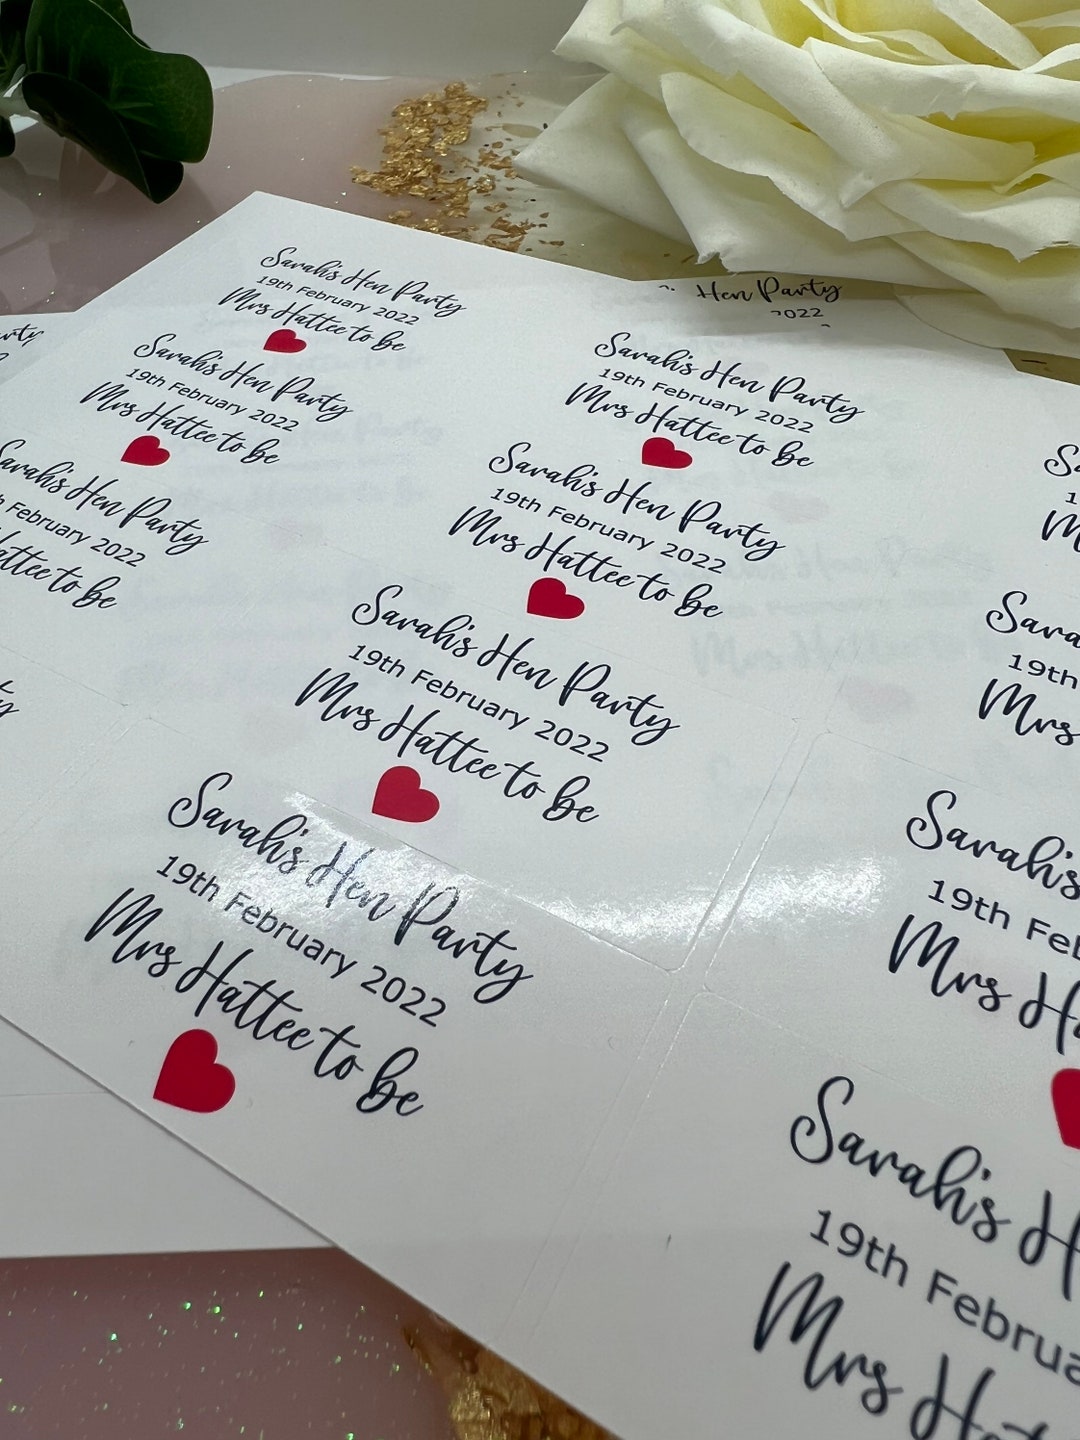 Sarah's Hen Party
19th February 2022
Mrs Hattee to be
Hen Party
2022
Sarah's Hen Party
19th February 2022
Mrs Hattee to be
Sarah's Hen Party
19th February 2022
Mrs Hattee to be
Sarah's Hen Party
February 2022
to be
Sarah's Hen Party
19th February 2022
Mrs Hattee to be
Sarah's Hen Party
19th February 2022
Mrs Hattee to be
Sarah's Hen Party
19th February 2022
Mrs Hattee to be
19th
Mrs
Sarah's
19th
Mrs
Sarah's
19th
Mrs